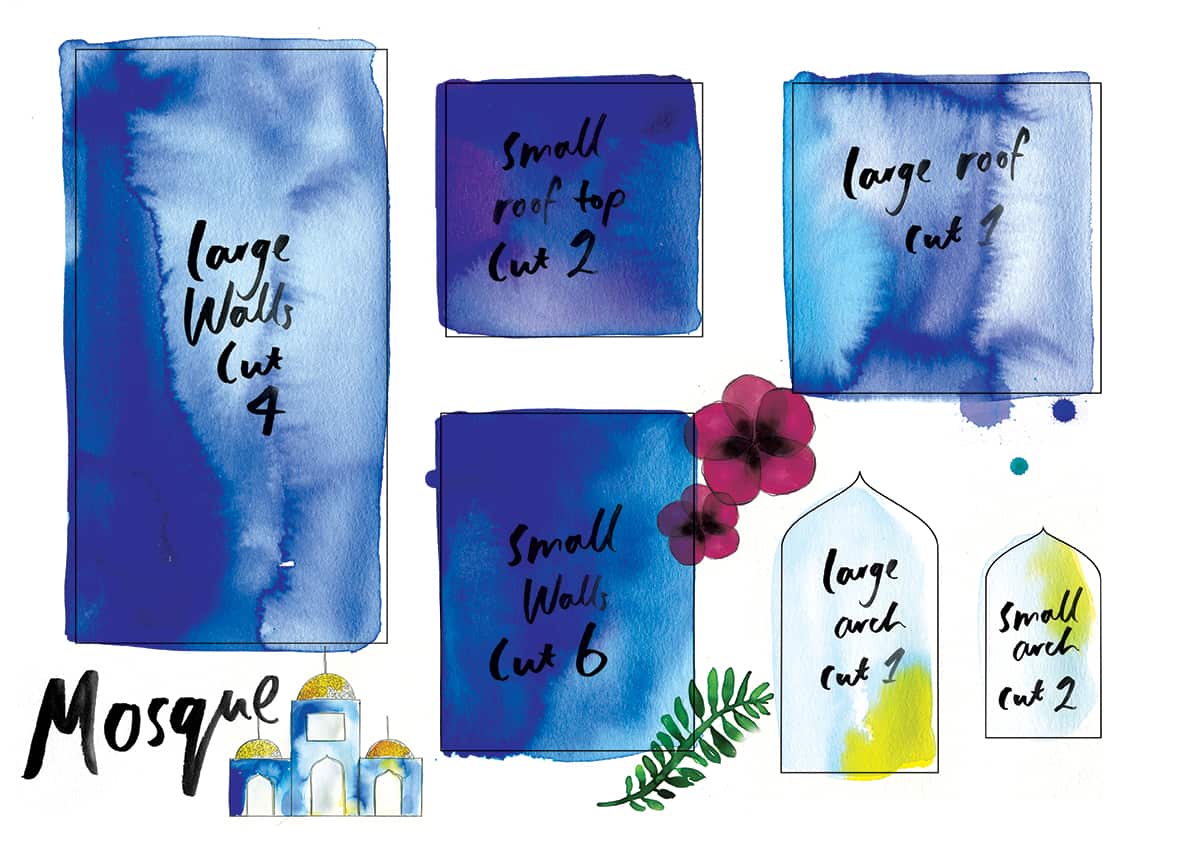 large
Walls
Cut
4
small
roof top
Cut 2
large roof
cut 1
small
Walls
Cut 6
large
arch
cut 1
small
arch
cut 2
Mosque